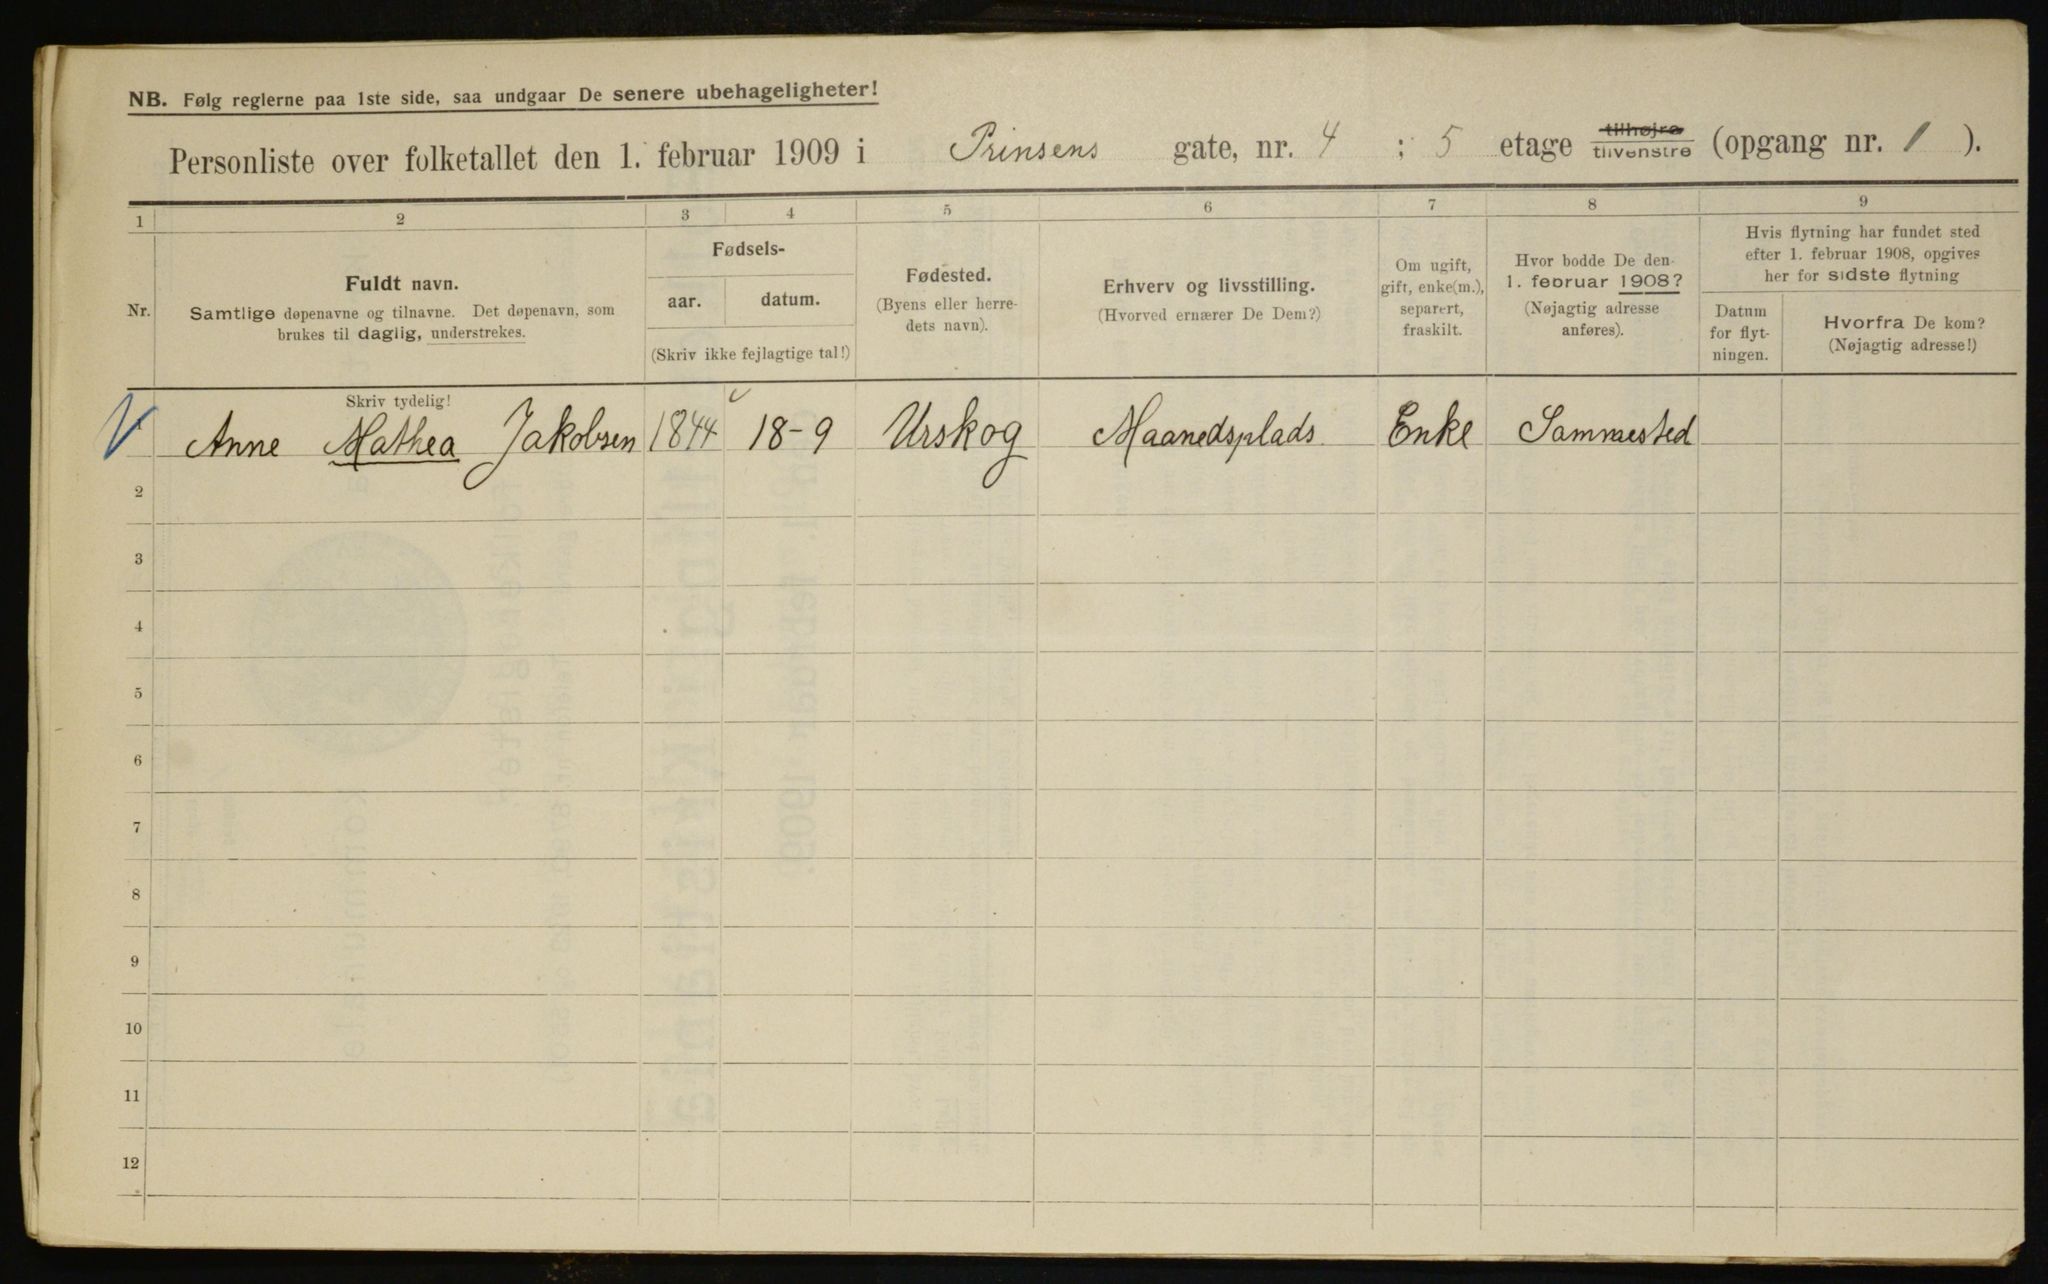 NB. Følg reglerne paa 1ste side, saa undgaar De senere ubehageligheter!
Personliste over folketallet den 1. februar 1909 i Prinsens gate, nr. 4 ; 5 etage tilhøjre tilvenstre (opgang nr. 1 ).
1 2 3 4 5 6 7 8 9
Nr.
Fuldt navn.
Samtlige døpenavne og tilnavne. Det døpenavn, som
brukes til daglig, understrekes.
Skriv tydelig!
Fødsels-
aar. datum.
(Skriv ikke fejlagtige tal!)
Fødested.
(Byens eller herre-
dets navn).
Erhverv og livsstilling.
(Hvorved ernærer De Dem?)
Om ugift,
gift, enke(m.),
separert,
fraskilt.
Hvor bodde De den
1. februar 1908?
(Nøjagtig adresse
anføres).
Hvis flytning har fundet sted
efter 1. februar 1908, opgives
her for sidste flytning
Datum
for flyt-
ningen.
Hvorfra De kom?
(Nøjagtig adresse!)
1 Anne Mathea Jakobsen 1844 18-9 Urskog Maanedsplads Enke Sammested
2
3
4
5
6
7
8
9
10
11
12